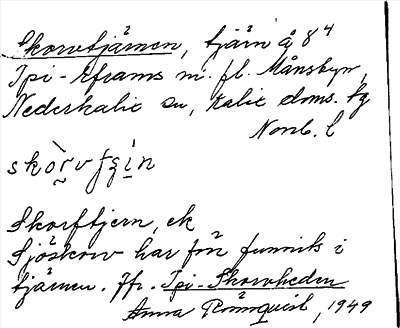 Skorvtjärnen, tjärn å 8⁴
Ipi-Eframs m. fl. Månsbyn,
Nederkalix sn, Kalix doms. tg
Norrb. l
Skorftjern, ek
Sjöskorv har förr funnits i
tjärnen. Jfr. Ipi-Skorvheden
Anna Rönnqvist, 1949